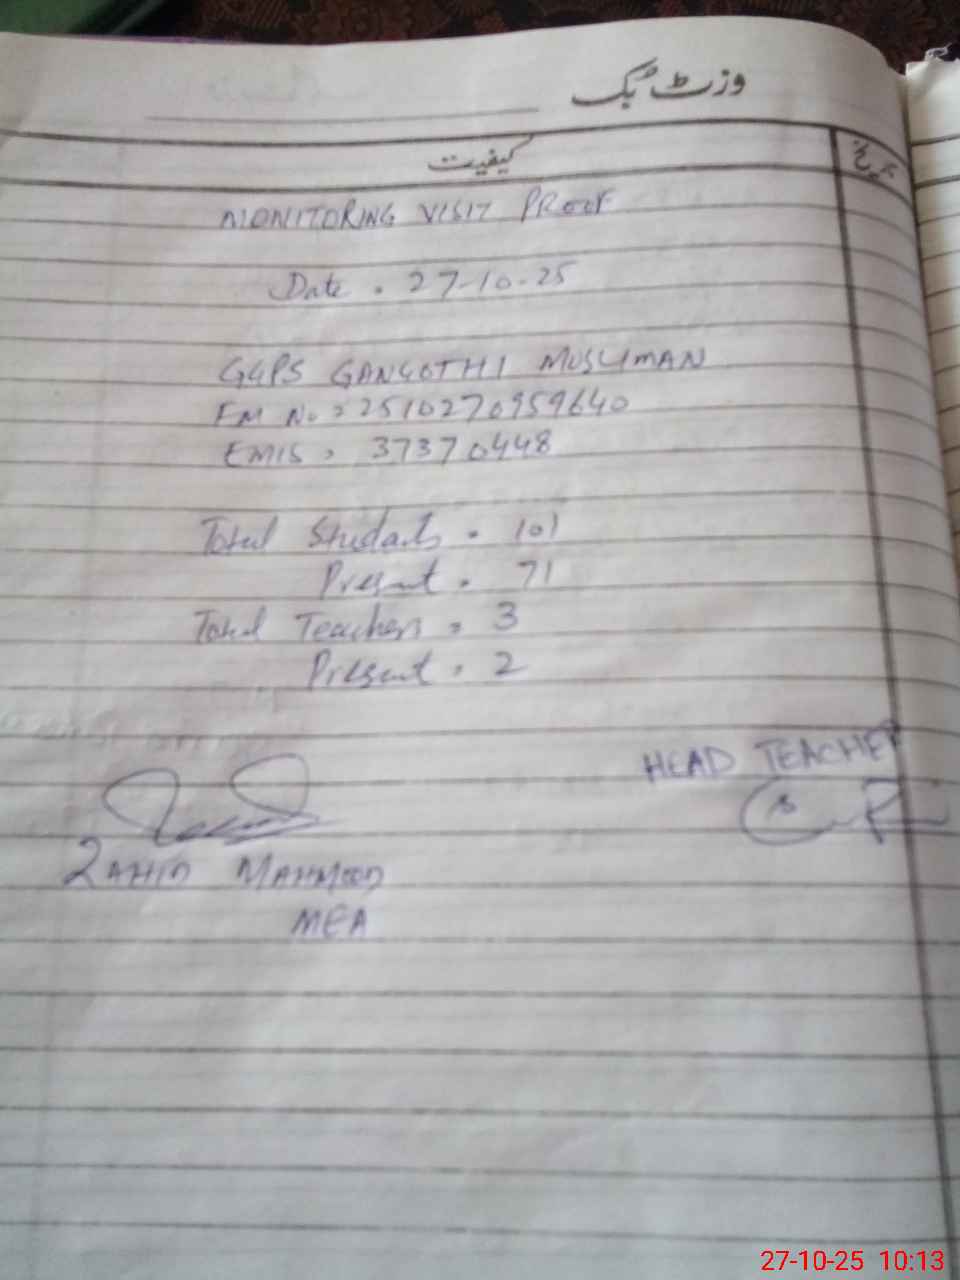 وزٹ بک
کیفیت
تاریخ
MONITORING VISIT PROOF
Date = 27-10-25
GGPS GANGOTHI MUSLIMAN
FM No = 2510270959640
EMIS = 37370448
Total Students = 101
Present = 71
Total Teachers = 3
Present = 2
HEAD TEACHER
ZAHID MAHMOOD
MEA
27-10-25 10:13